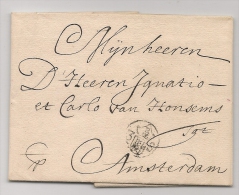 Mijnheeren
D'Heeren Ignatio
et Carlo van Honsems
Amsterdam